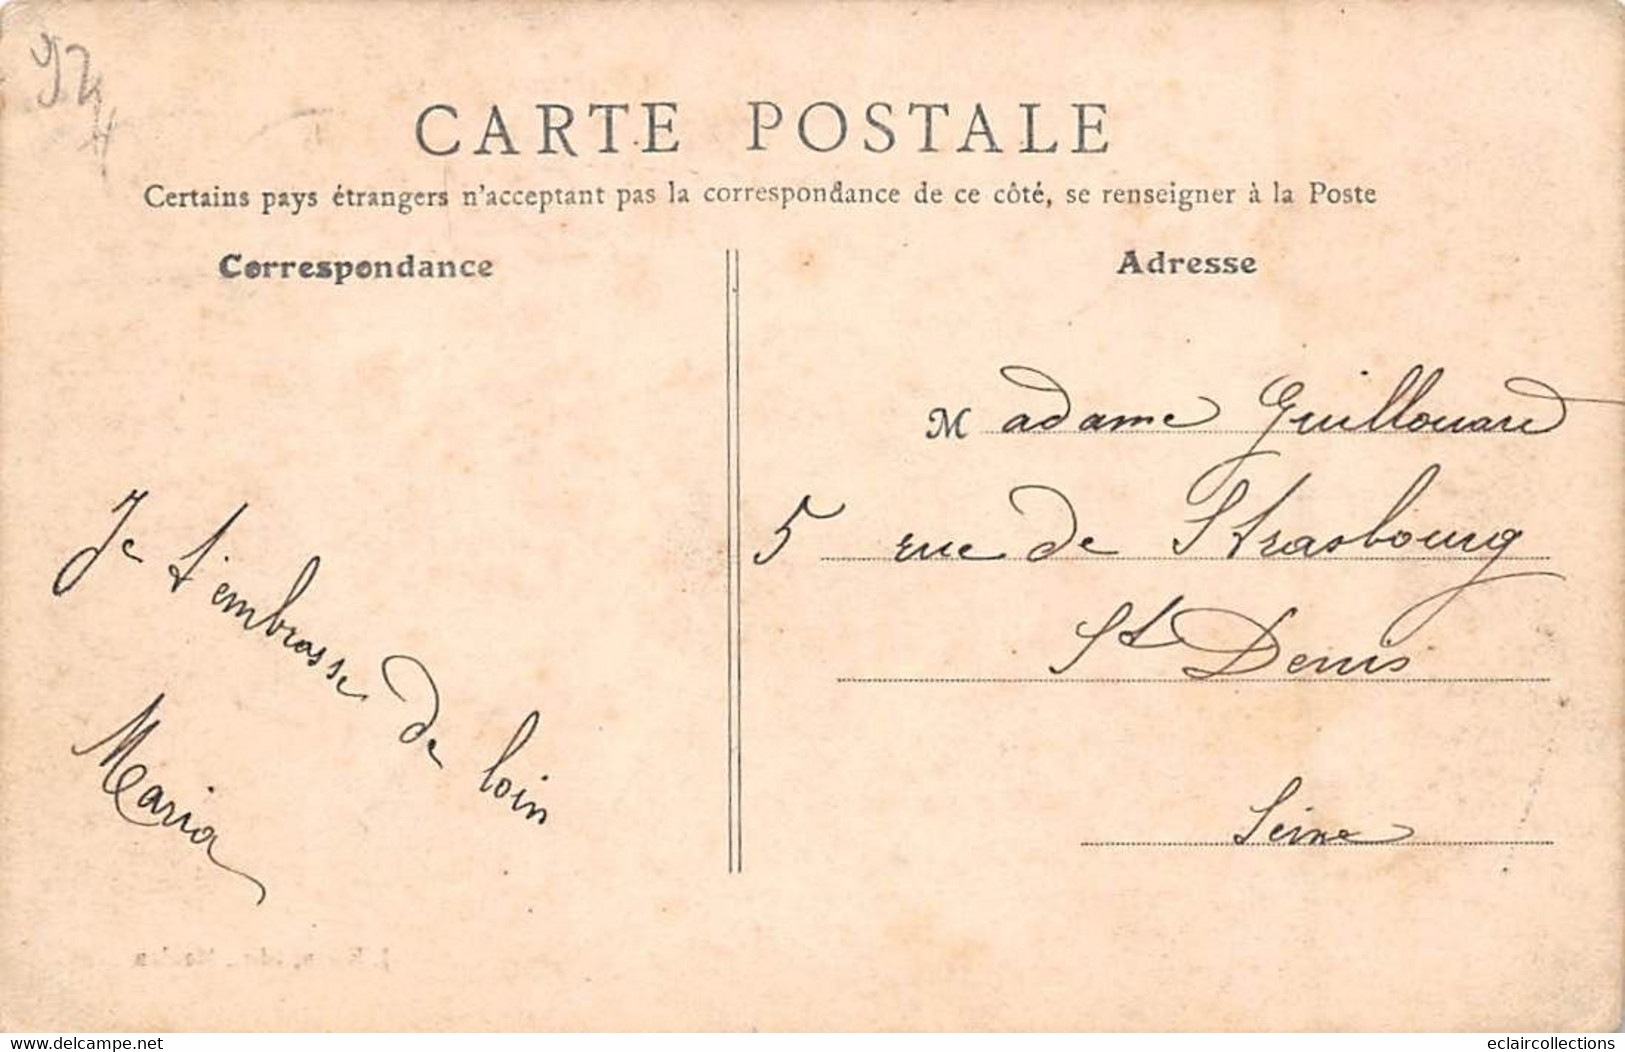 92
CARTE POSTALE
Certains pays étrangers n'acceptant pas la correspondance de ce côté, se renseigner à la Poste
Correspondance
Je t'embrasse de loin
Maria
Adresse
Madame Guillouard
5 rue de Strasbourg
St Denis
Seine
www.delcampe.net
eclaircollections